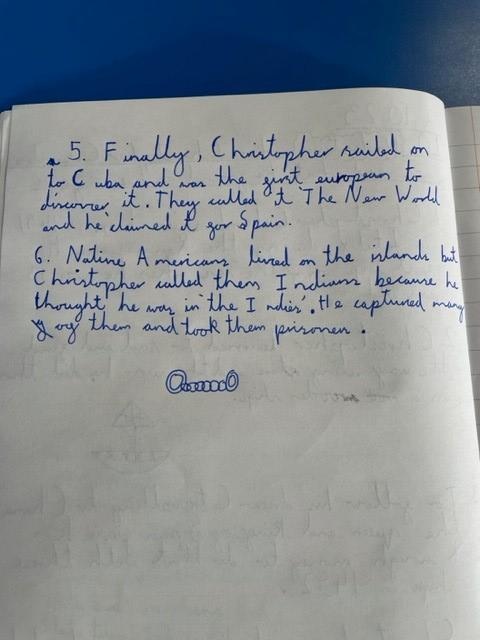 5. Finally, Christopher sailed on
to Cuba and was the first european to
discover it. They called it 'The New World'
and he claimed it for Spain.
6. Native Americans lived on the islands but
Christopher called them Indians because he
thought he was in 'the Indies'. He captured many
of them and took them prisoner.